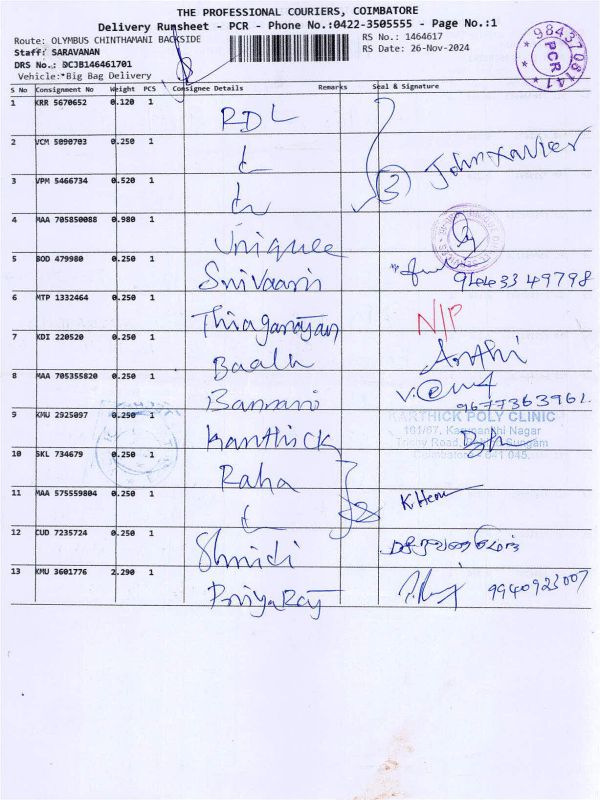 THE PROFESSIONAL COURIERS, COIMBATORE
Delivery Runsheet - PCR - Phone No.:0422-3505555 - Page No.:1
Route: OLYMBUS CHINTHAMANI BACKSIDE RS No.: 1464617
Staff: SARAVANAN RS Date: 26-Nov-2024
DRS No.: DCJB146461701
Vehicle:*Big Bag Delivery
* 9843708141 *
PCR
S No Consignment No Weight PCS Consignee Details Remarks Seal & Signature
1 KRR 5670652 0.120 1 RDL
2 VCM 5090703 0.250 1
3 VPM 5466734 0.520 1
3 John Xavier
4 MAA 705850088 0.980 1 Uniquee
5 BOD 479980 0.250 1 Srivaari 96433 49798
6 MTP 1332464 0.250 1 Thiagarajan N/P
7 KDI 220520 0.250 1 Baalu Arthi
8 MAA 705355820 0.250 1 Bannari 9677363961.
9 KMU 2925097 0.250 1 Karthick
KARTHICK POLY CLINIC
10 SKL 734679 0.250 1 Raha
11 MAA 575559804 0.250 1
2 K.Hem
12 CUD 7235724 0.250 1 Shridi
13 KMU 3601776 2.290 1 PriyaRaj 9940923007